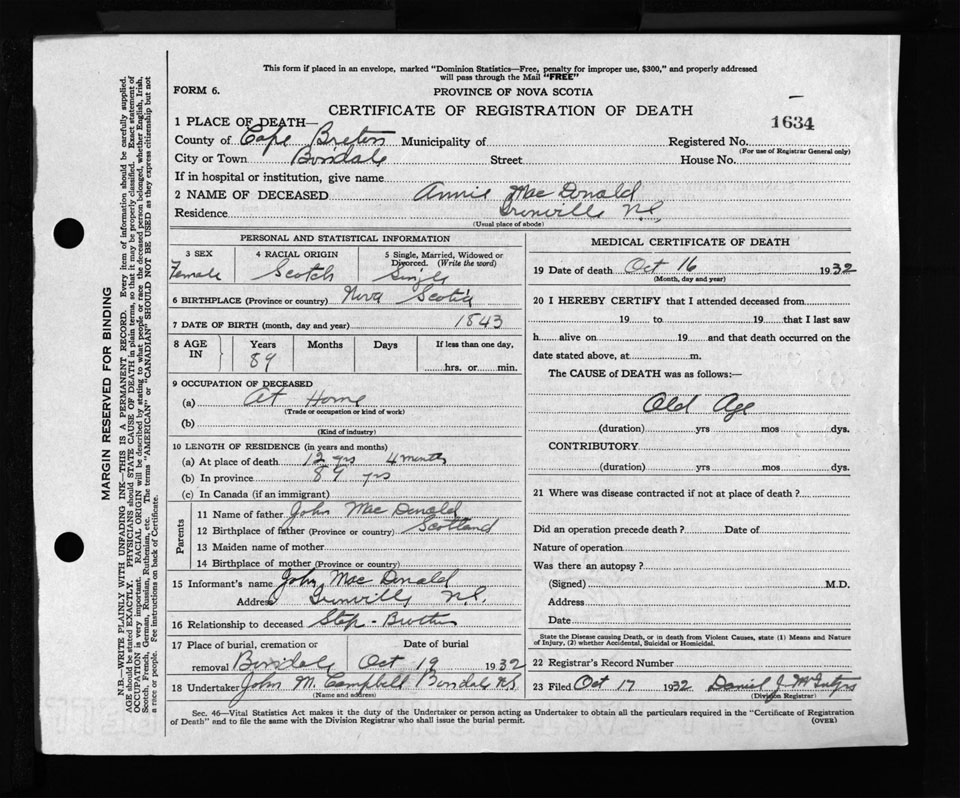 This form if placed in an envelope, marked "Dominion Statistics—Free, penalty for improper use, $300," and properly addressed
will pass through the Mail "FREE"
FORM 6.
PROVINCE OF NOVA SCOTIA
CERTIFICATE OF REGISTRATION OF DEATH
1634
1 PLACE OF DEATH—
County of Cape Breton Municipality of
Registered No.
(For use of Registrar General only)
City or Town Boisdale Street House No.
If in hospital or institution, give name
2 NAME OF DECEASED Annie Mac Donald
Residence N.S.
(Usual place of abode)
PERSONAL AND STATISTICAL INFORMATION
3 SEX
Female
4 RACIAL ORIGIN
Scotch
5 Single, Married, Widowed or
Divorced. (Write the word)
Single
6 BIRTHPLACE (Province or country) Nova Scotia
7 DATE OF BIRTH (month, day and year) 1843
8 AGE
IN
Years
89
Months
Days
If less than one day,
hrs. or min.
9 OCCUPATION OF DECEASED
(a) At Home
(Trade or occupation or kind of work)
(b)
(Kind of industry)
10 LENGTH OF RESIDENCE (in years and months)
(a) At place of death 12 yrs 4 months
(b) In province 89 yrs
(c) In Canada (if an immigrant)
Parents
11 Name of father John Mac Donald
12 Birthplace of father (Province or country) Scotland
13 Maiden name of mother
14 Birthplace of mother (Province or country)
15 Informant's name John Mac Donald
Address N.S.
16 Relationship to deceased Step-Brother
17 Place of burial, cremation or
removal Boisdale
Date of burial
Oct 19 1932
18 Undertaker John M. Campbell Boisdale N.S
(Name and address)
MEDICAL CERTIFICATE OF DEATH
19 Date of death Oct 16 1932
(Month, day and year)
20 I HEREBY CERTIFY that I attended deceased from
19 to 19 that I last saw
h alive on 19 and that death occurred on the
date stated above, at m.
The CAUSE of DEATH was as follows:—
Old Age
(duration) yrs mos dys.
CONTRIBUTORY
(duration) yrs mos dys.
21 Where was disease contracted if not at place of death?
Did an operation precede death? Date of
Nature of operation
Was there an autopsy?
(Signed) M.D.
Address
Date
State the Disease causing Death, or in death from Violent Causes, state (1) Means and Nature
of Injury, (2) whether Accidental, Suicidal or Homicidal.
22 Registrar's Record Number
23 Filed Oct 17 1932 Daniel J. McIntyre
(Division Registrar)
Sec. 46—Vital Statistics Act makes it the duty of the Undertaker or person acting as Undertaker to obtain all the particulars required in the "Certificate of Registration
of Death" and to file the same with the Division Registrar who shall issue the burial permit.
(OVER)
MARGIN RESERVED FOR BINDING
N.B.—WRITE PLAINLY WITH UNFADING INK—THIS IS A PERMANENT RECORD. Every item of information should be carefully supplied.
AGE should be stated EXACTLY. PHYSICIANS should STATE CAUSE OF DEATH in plain terms, so that it may be properly classified. Exact statement of
OCCUPATION is very important. RACIAL ORIGIN will be described by stating to what people or race the deceased person belonged, whether English, Irish,
Scotch, French, German, Russian, Ruthenian, etc. The terms "AMERICAN" or "CANADIAN" SHOULD NOT BE USED as they express citizenship but not
a race or people. See instructions on back of Certificate.